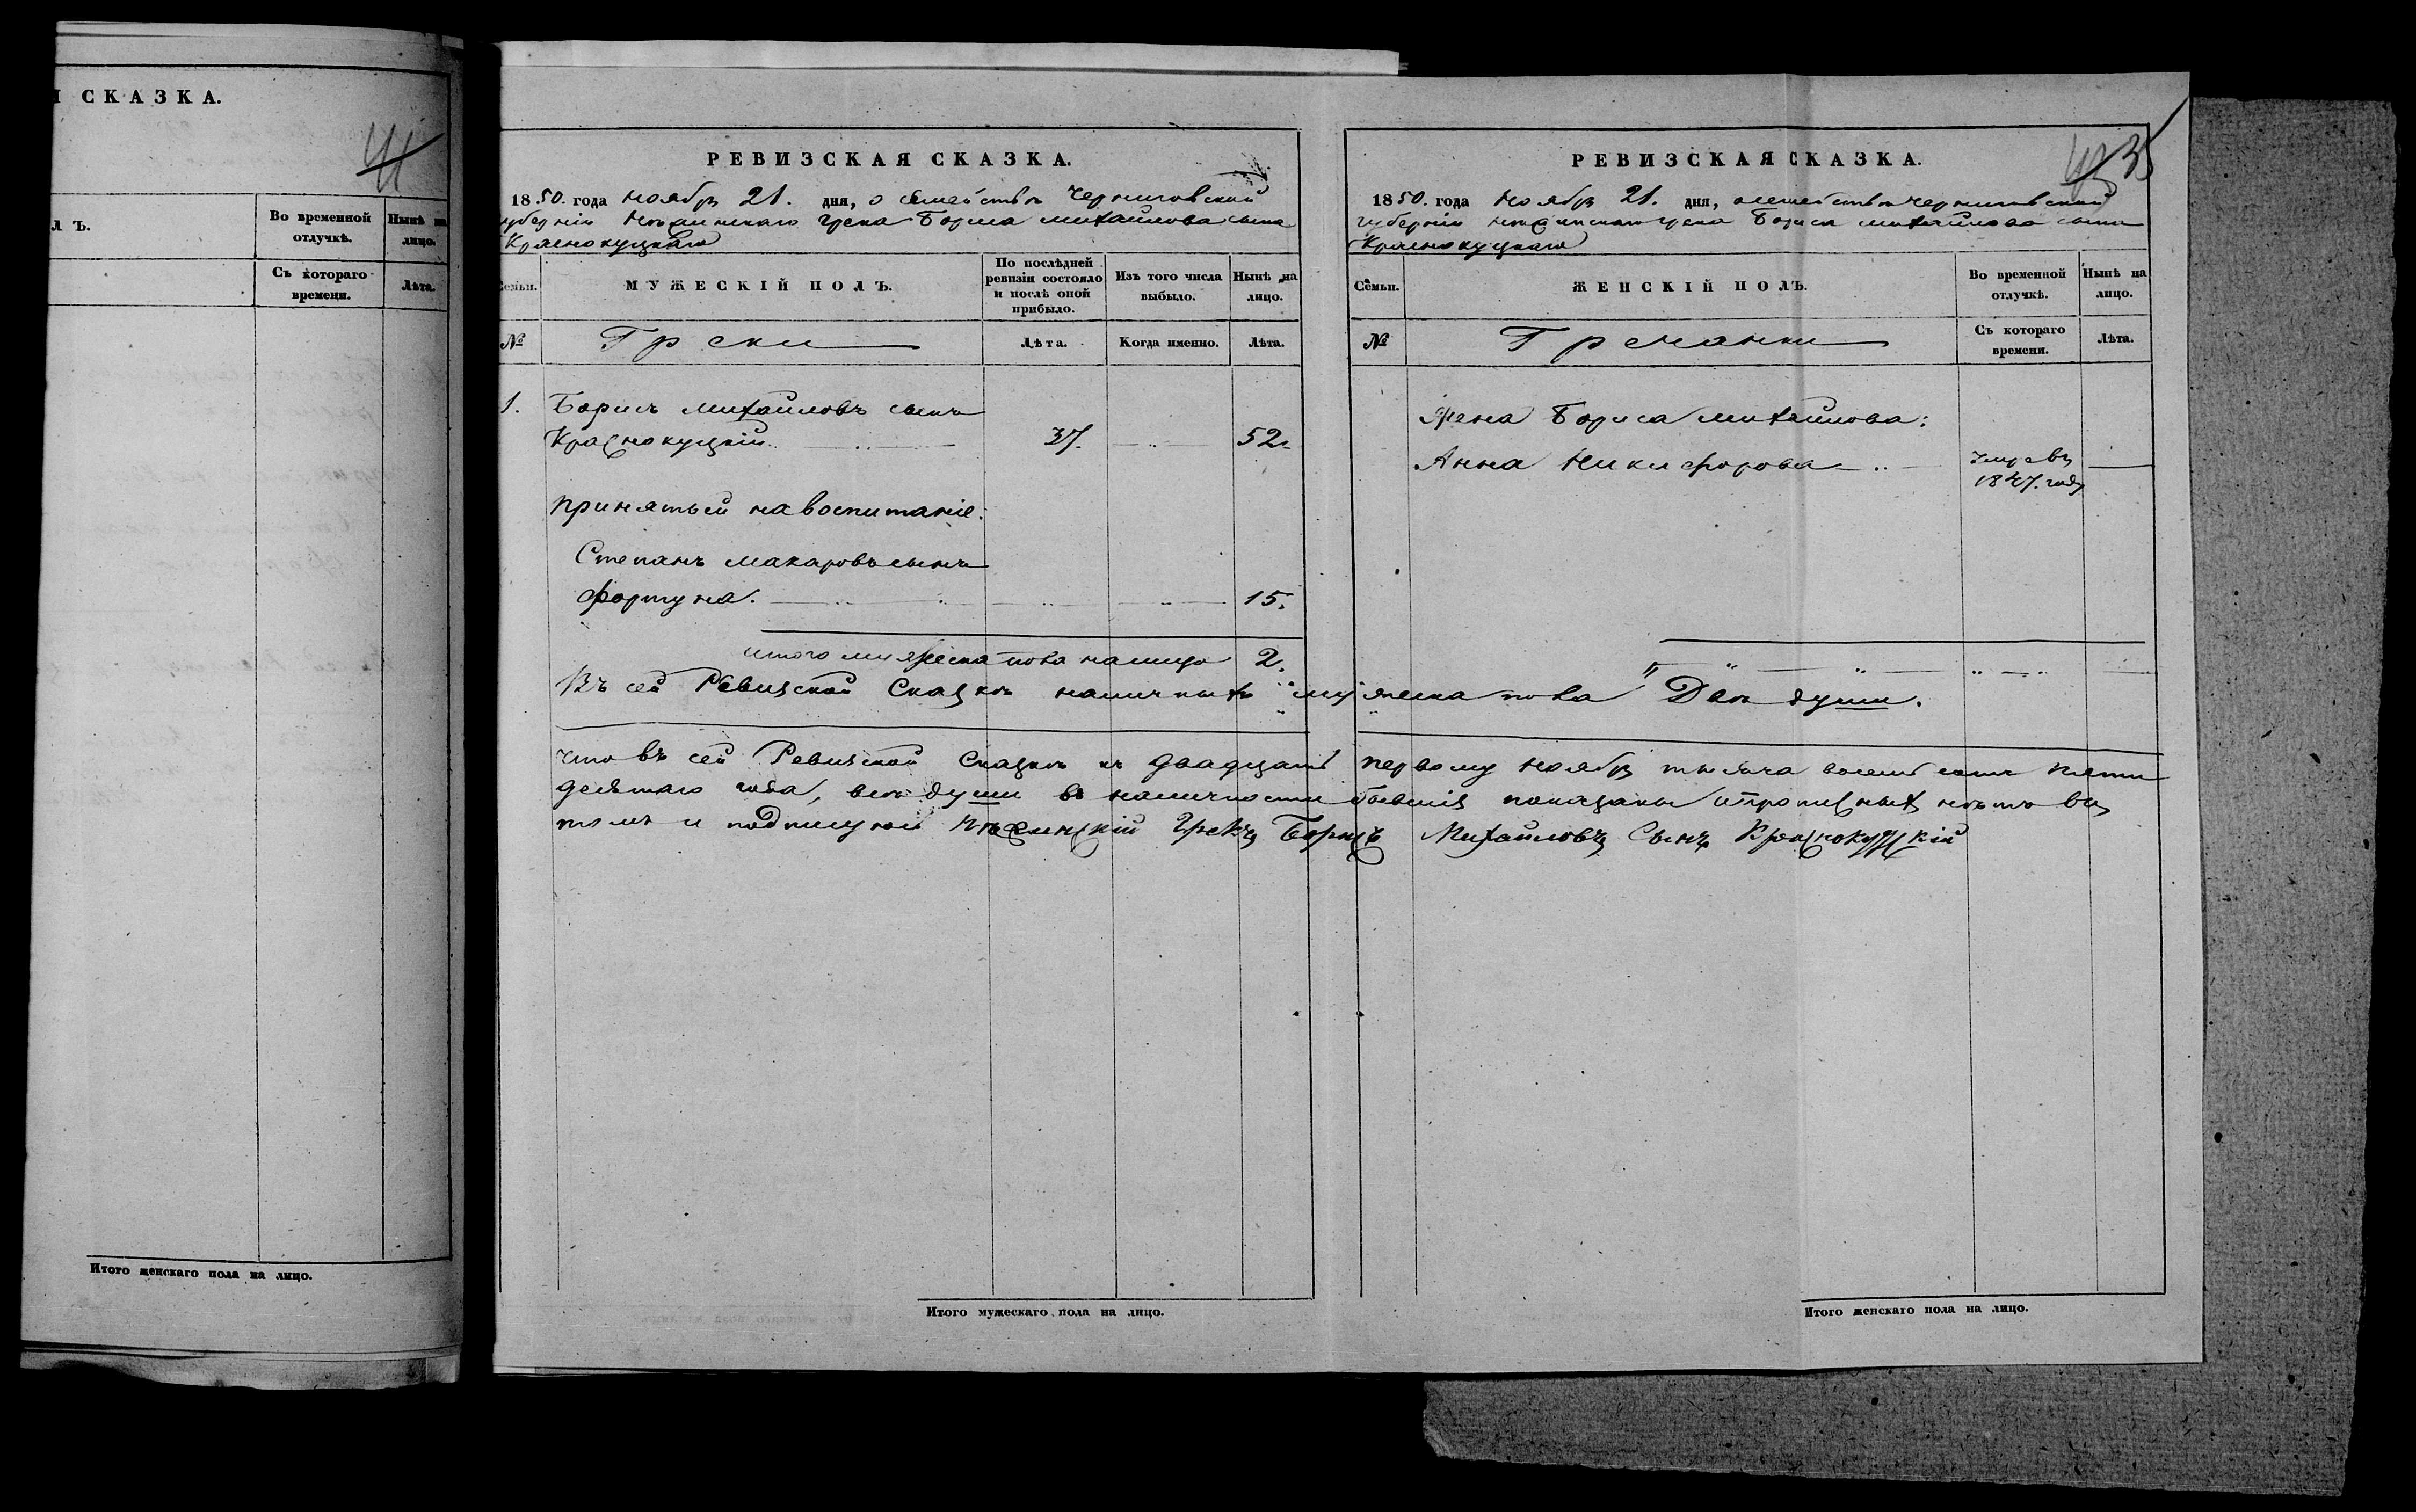 СКАЗКА.
41
Л Ъ.
Во временной отлучкѣ.
Нынѣ на лицо.
Съ котораго времени.
Лѣта.
Итого женскаго пола на лицо.
РЕВИЗСКАЯ СКАЗКА.
1850. года ноября 21. дня, о семействѣ Черниговской
губерніи Нѣжинскаго грека Бориса Михайлова сына
Краснокуцкаго
Семьи.
МУЖЕСКІЙ ПОЛЪ.
По послѣдней ревизіи состояло и послѣ оной прибыло.
Изъ того числа выбыло.
Нынѣ на лицо.
№
Греки
Лѣта.
Когда именно.
Лѣта.
1. Борисъ Михайловъ сынъ
Краснокуцкій 37. 52.
принятый на воспитаніе:
Степанъ Макаровъ сынъ
Фортуна. 15.
итого мужеска пола налицо 2.
РЕВИЗСКАЯ СКАЗКА.
35
1850. года ноября 21. дня, о семействѣ Черниговской
губерніи Нѣжинскаго грека Бориса Михайлова сына
Краснокуцкаго
Семьи.
ЖЕНСКІЙ ПОЛЪ.
Во временной отлучкѣ.
Нынѣ на лицо.
№
Гречанки
Съ котораго времени.
Лѣта.
Жена Бориса Михайлова:
Анна Никифорова умре въ
1847. году
Въ сей Ревизской Сказкѣ наличныхъ мужеска пола Двѣ души.
что въ сей Ревизской Сказкѣ къ двадцать первому ноября тысяча восемь сотъ пяти
десятаго года, всѣ души въ наличности бывшія показаны и прописныхъ нѣтъ въ
томъ и подписуюсь Нѣжинскій Грекъ Борисъ Михайловъ Сынъ Краснокуцкій
Итого мужескаго пола на лицо.
Итого женскаго пола на лицо.